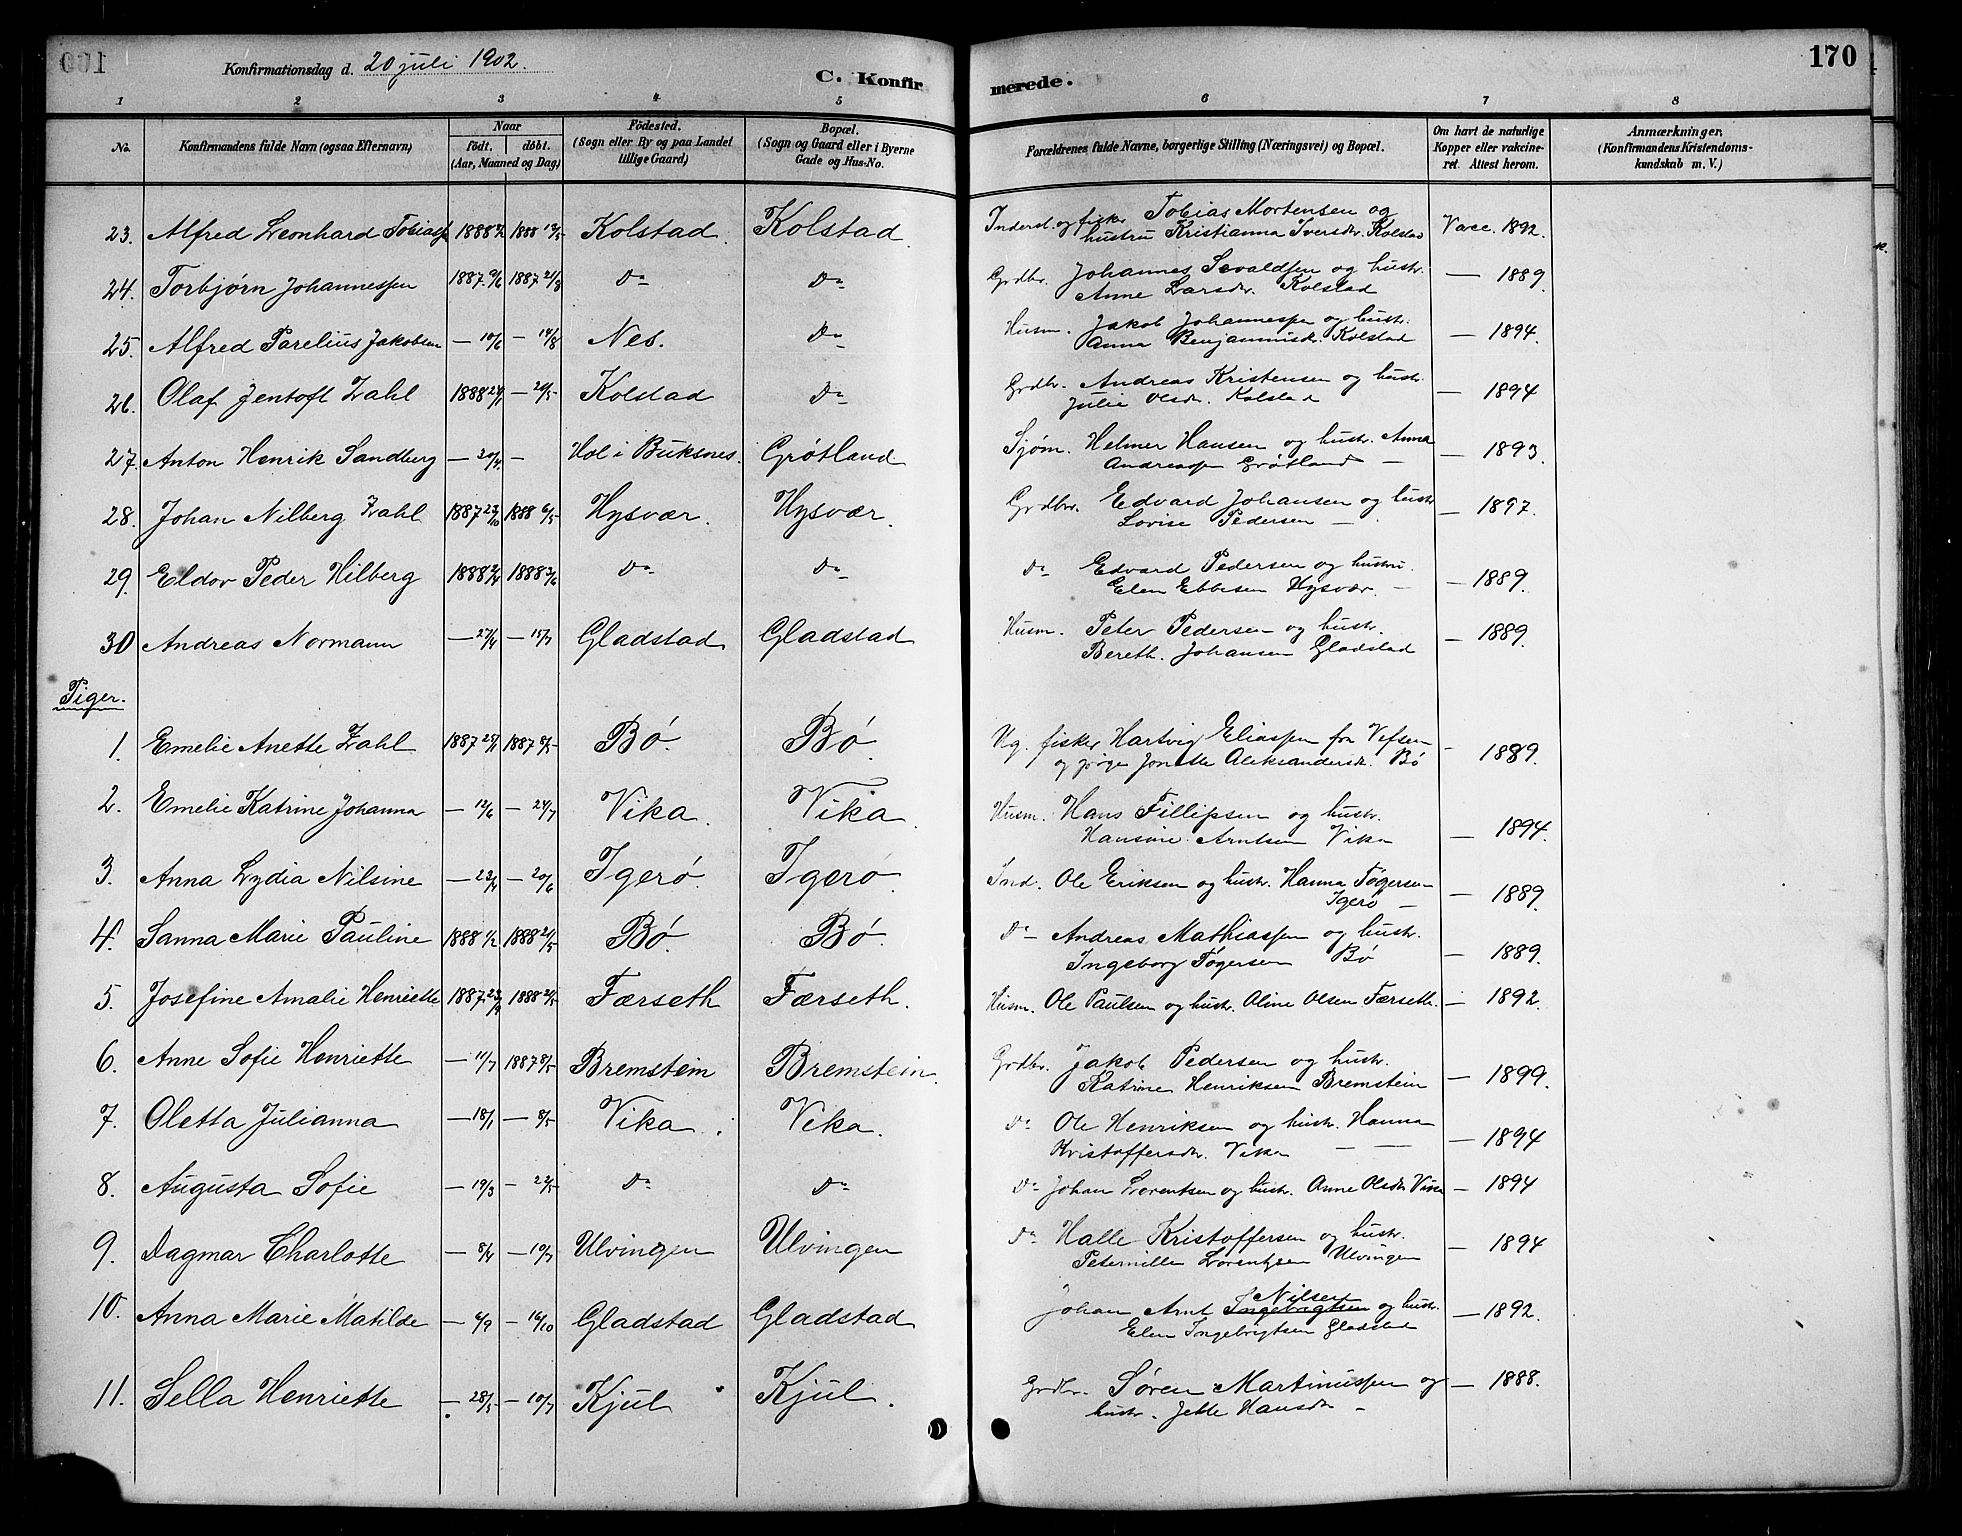 Konfirmationsdag d. 20 juli 1902.
C. Konfirmerede.
170
1 2 3 4 5 6 7 8
No.
Konfirmandens fulde Navn (ogsaa Efternavn)
Naar
födt. döbt.
(Aar, Maaned og Dag)
Födested.
(Sogn eller By og paa Landet
tillige Gaard)
Bopæl.
(Sogn og Gaard eller i Byerne
Gade og Hus-No.
Forældrenes fulde Navne, borgerlige Stilling (Næringsvei) og Bopæl.
Om havt de naturlige
Kopper eller vakcineret. Attest herom.
Anmærkninger.
(Konfirmandens Kristendomskundskab m. V.)
23. Alfred Leonhard Tobiassen 1888 1888 Kolstad. Kolstad. Inderst. og fisker Tobias Mortensen og
hustru Kristianna Iversdr. Kolstad Vacc. 1892.
24. Torbjørn Johannessen 1887 9/6 1887 21/8 Do Do Grdbr. Johannes Sevaldsen og hustr.
Anne Larsdr. Kolstad — 1889.
25. Alfred Parelius Jakobsen — 10/6 — 14/8 Nes. Do Husm. Jakob Johannessen og hustr.
Anna Benjaminsdr. Kolstad — 1894.
26. Olaf Jentoft Zahl 1888 — 20/5 Kolstad Do Grdbr. Andreas Kristensen og hustr.
Julie Olsdr. Kolstad — 1894
27. Anton Henrik Sandberg — 20/4 — Hol i Buksnes. Grøtland Sjøm. Helmer Hansen og hustr. Anna
Andreassen Grøtland — — 1893.
28. Johan Nilberg Zahl 1887 23/10 1888 6/5 Hysvær. Hysvær. Grdbr. Edvard Johansen og hustr
Lovise Pedersen — — 1897.
29. Eldov Peder Hilberg 1888 2/4 1888 3/6 Do Do Do Edvard Pedersen og hustru.
Elen Ebbesen Hysvær. — 1889.
30 Andreas Normann — 27/4 — 15/7 Gladstad Gladstad Husm. Peter Pedersen og hustr.
Bereth. Johansen Gladstad — 1889.
Piger.
1. Emelie Anette Zahl 1887 1887 Bø. Bø. Ug. fisker Hartvig Eliassen fra Vefsen
og pige Jonette Aleksandersdr. Bø — 1889.
2. Emelie Katrine Johanna — 12/6 — 24/7 Vika. Vika. Husm. Hans Fillipsen og hustr.
Hansine Arntsen Vika — 1894.
3. Anna Lydia Nilsine — 22/4 — 20/6 Igerø. Igerø. Ind. Ole Eriksen og hustr. Hanna Tøgersen
Igerø — — 1889.
4. Sanna Marie Pauline 1888 1/2 1888 21/5 Bø. Bø. Do Andreas Mathiassen og hustr.
Ingeborg Tøgersen Bø — 1889.
5. Josefine Amalie Henriette 1887 23/9 1888 21/5 Færseth Færseth. Husm. Ole Paulsen og hustr. Aline Olsen Færseth. — 1892.
6. Anne Sofie Henriette — 11/7 1887 8/5 Bremstein Bremstein. Grdbr. Jakob Pedersen og hustr.
Katrine Henriksen Bremstein — 1899.
7. Oletta Julianna — 18/1 — 8/5 Vika. Vika. Do Ole Henriksen og hustr. Hanna
Kristoffersdr. Vika — — 1894
8. Augusta Sofie — 19/3 — 22/5 Do Do Do Johan Lorentsen og hustr. Anne Olsdr Vika — 1894
9. Dagmar Charlotte — 8/4 — 10/7 Ulvingen Ulvingen Do Halle Kristoffersen og hustr.
Peternille Lorentzen Ulvingen — 1894
10. Anna Marie Matilde — 6/9 — 16/10 Gladstad Gladstad Nilsen
Johan Arnt Ingebrigtsen og hustr.
Elen Ingebrigtsen Gladstad — 1892.
11. Sella Henriette — 28/5 — 10/7 Kjul Kjul. Grdbr. Søren Martinussen og
hustr. Jette Hansdr — — 1888.